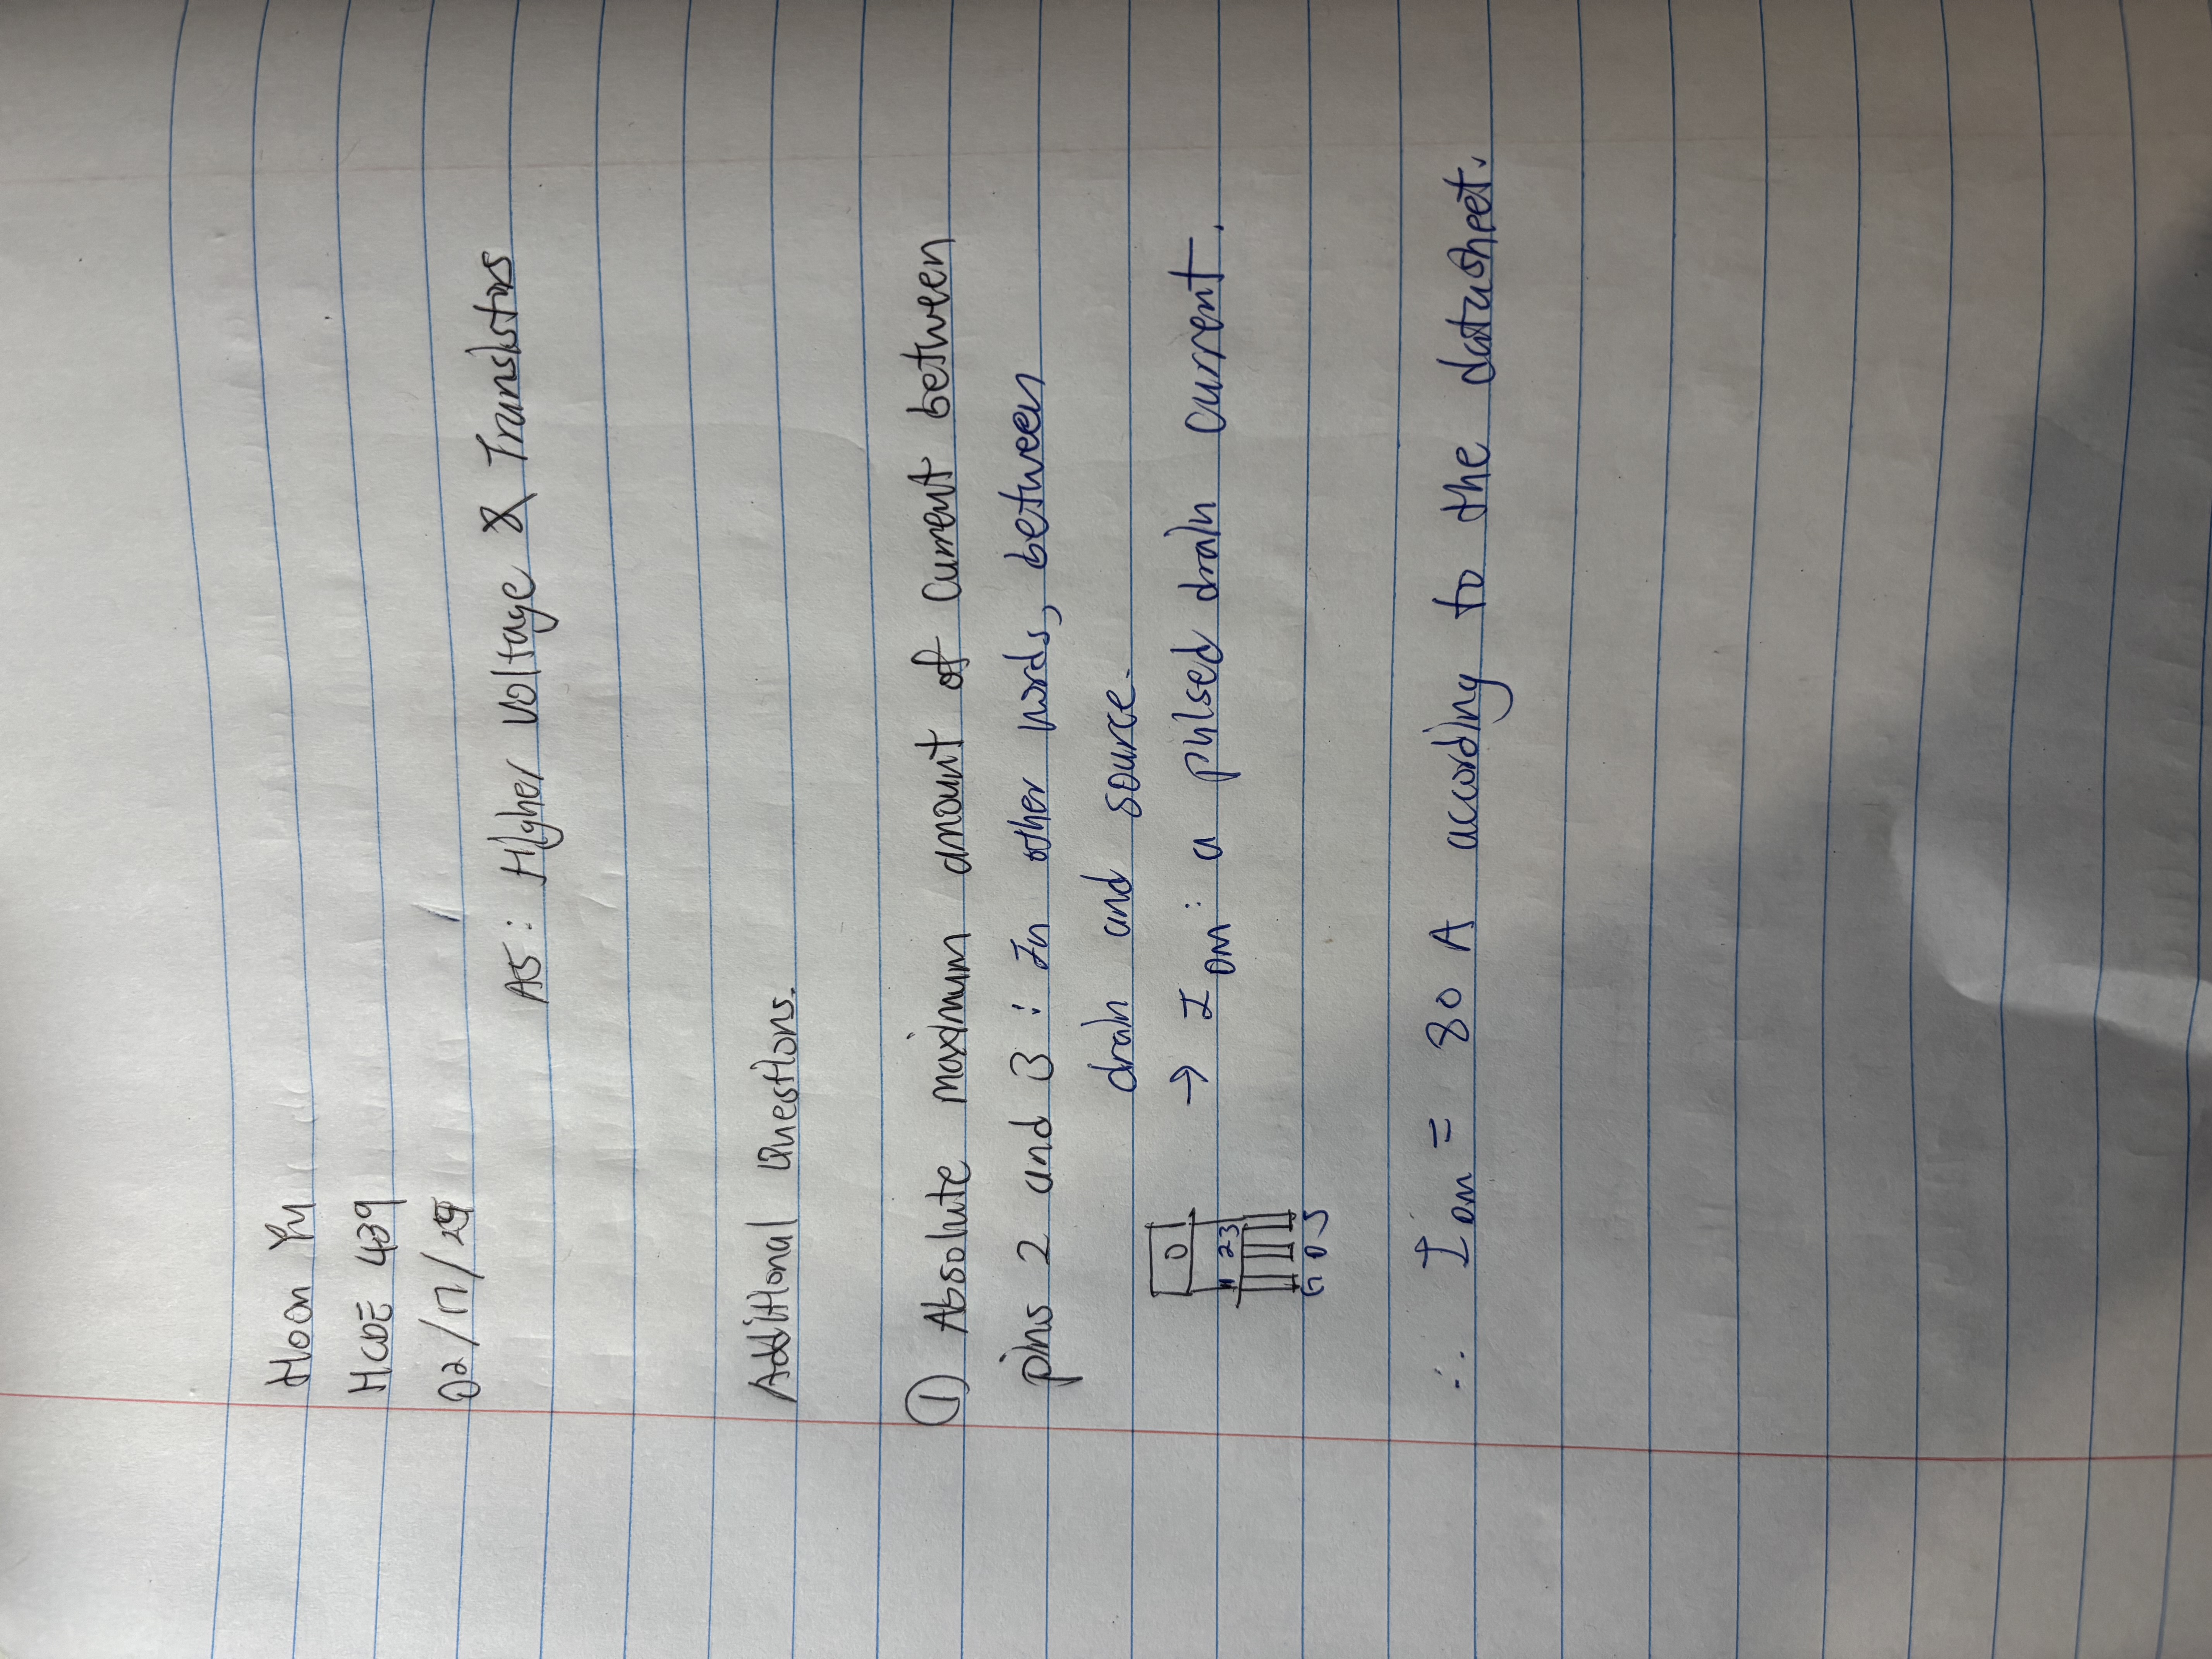 Hoon Yu
HCDE 439
02/17/25
A5: Higher Voltage & Transistors
Additional Questions.
① Absolute maximum amount of current between
pins 2 and 3: In other words, between
drain and source.
D
→ I_DM: a pulsed drain current.
1 2 3
G D S
∴ I_DM = 80 A according to the datasheet.